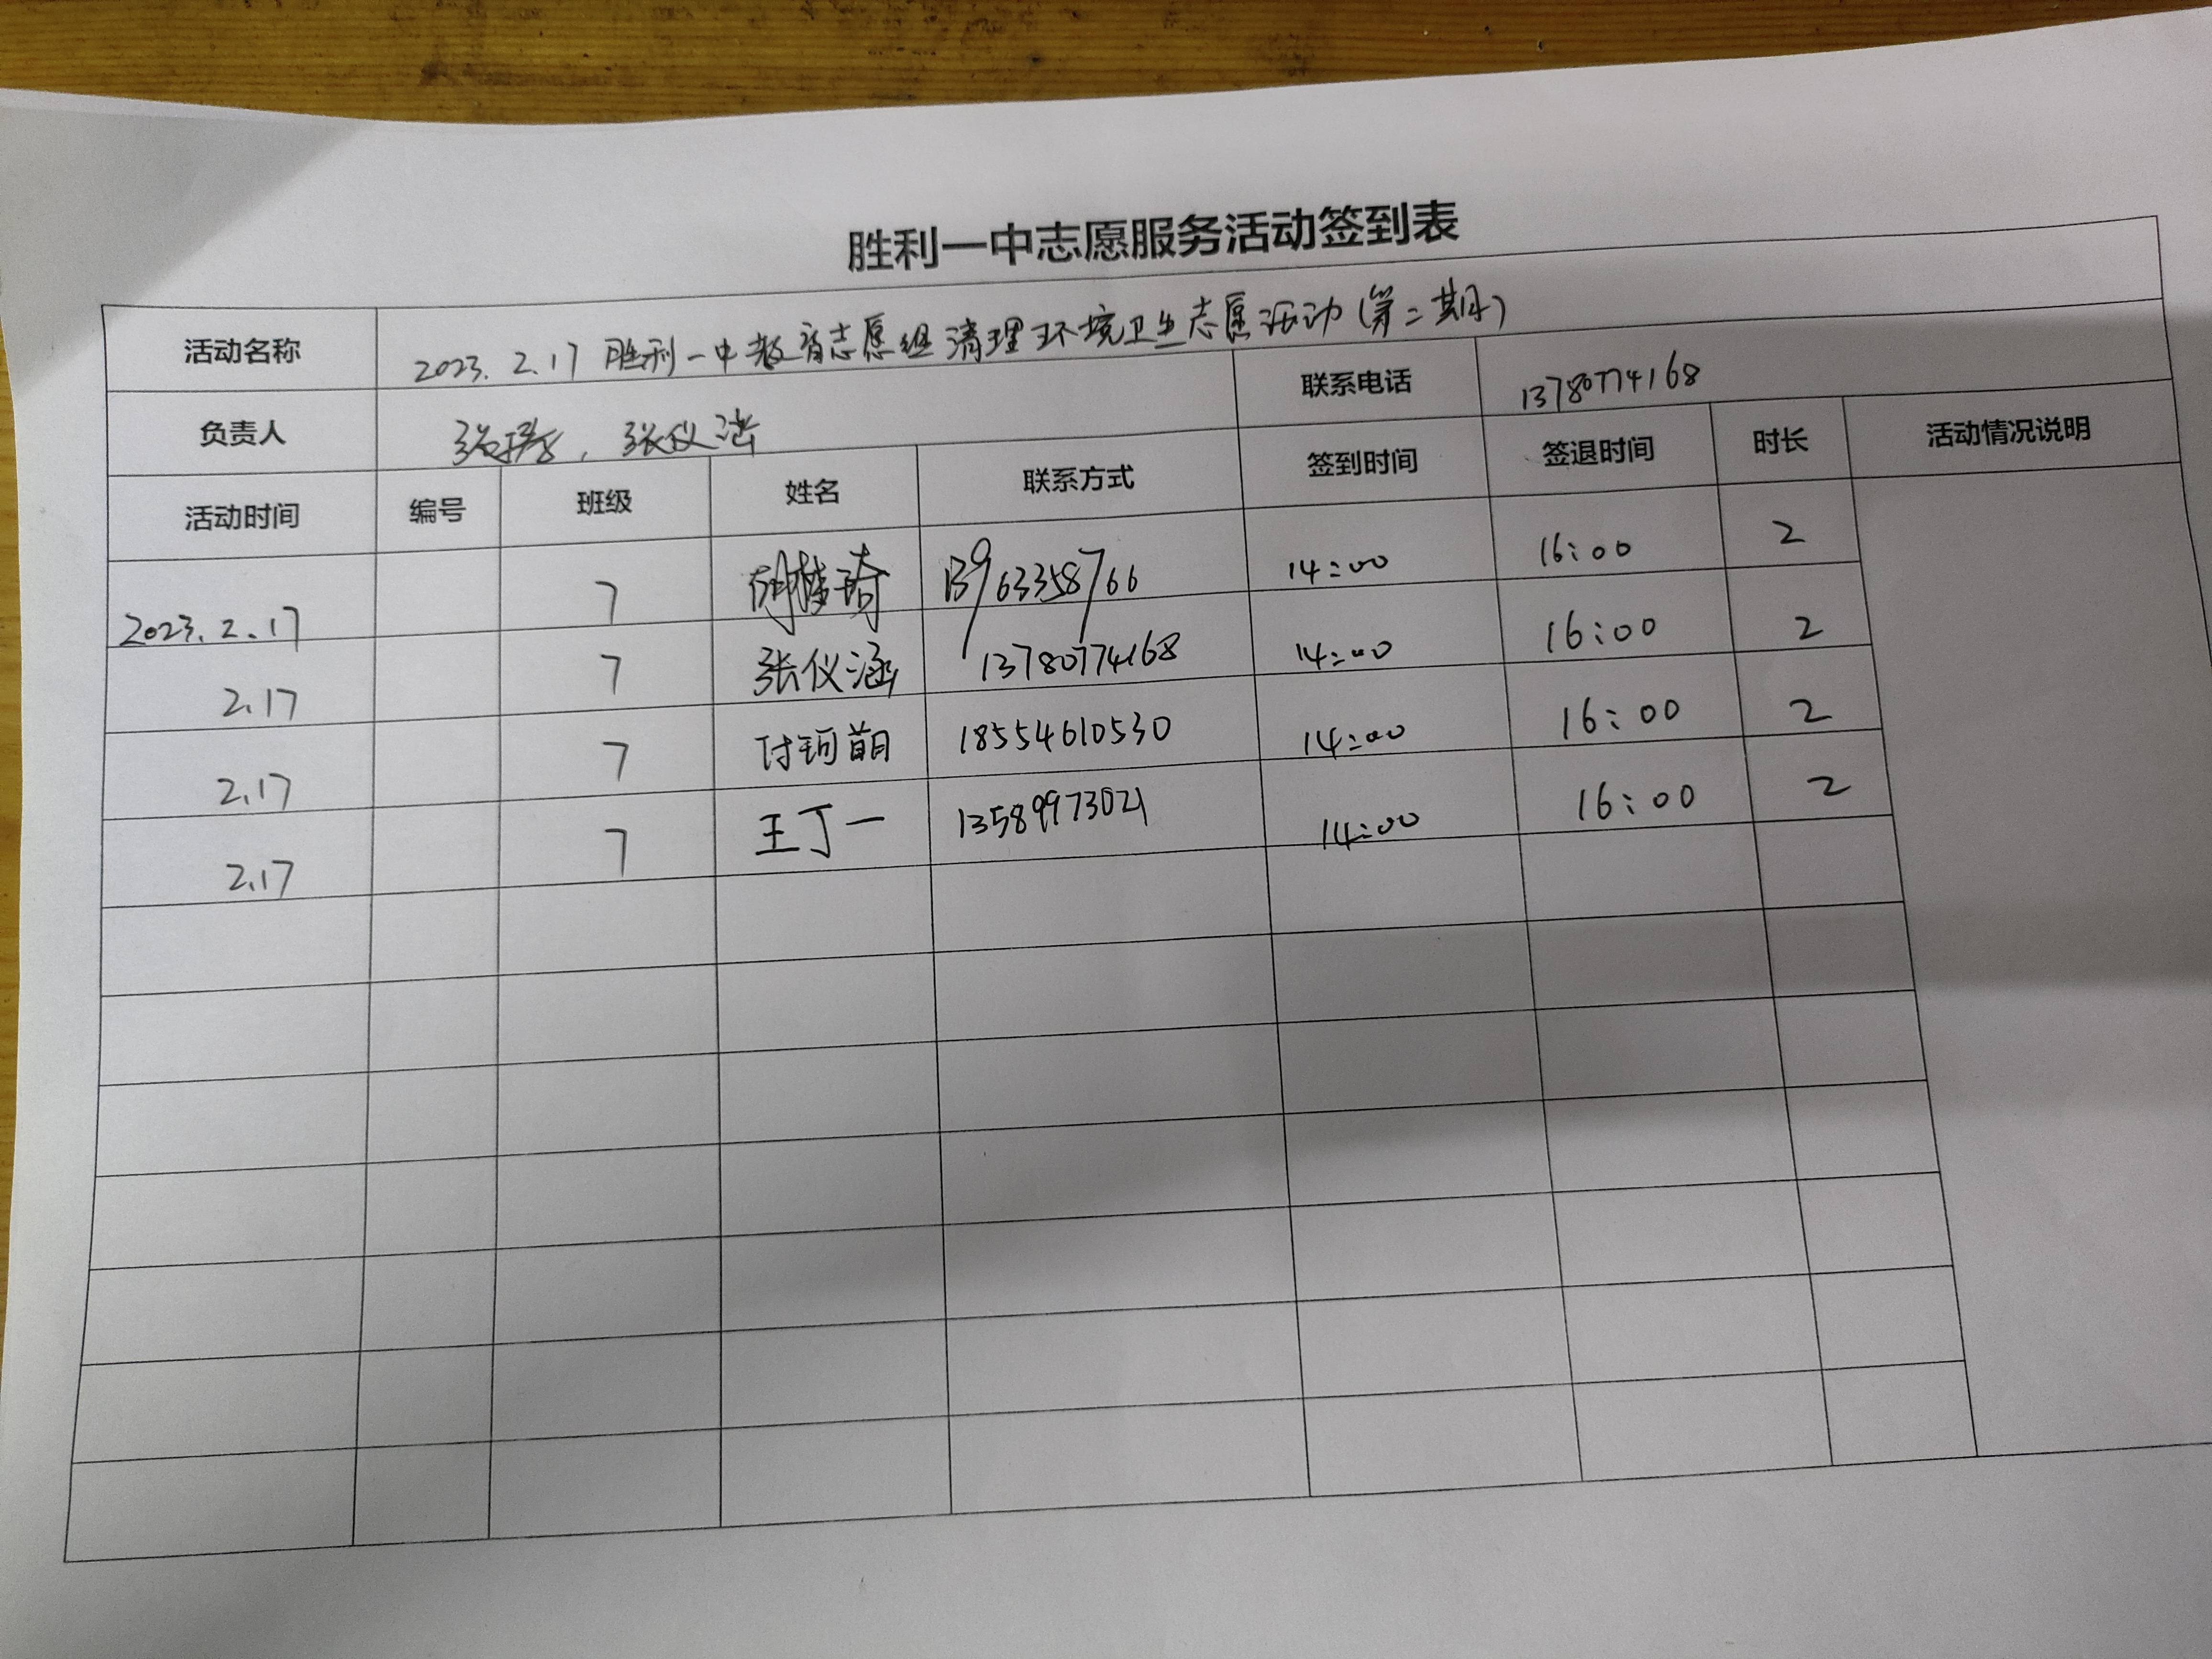 胜利一中志愿服务活动签到表
活动名称 2023. 2.17 胜利一中教育志愿组清理环境卫生志愿活动(第二期)
负责人 张仪涵 联系电话 13780774168
活动时间 编号 班级 姓名 联系方式 签到时间 签退时间 时长 活动情况说明
2023.2.17 7 13963358766 14:00 16:00 2
2.17 7 张仪涵 13780774168 14:00 16:00 2
2.17 7 付珂萌 18554610530 14:00 16:00 2
2.17 7 王丁一 13589973021 14:00 16:00 2